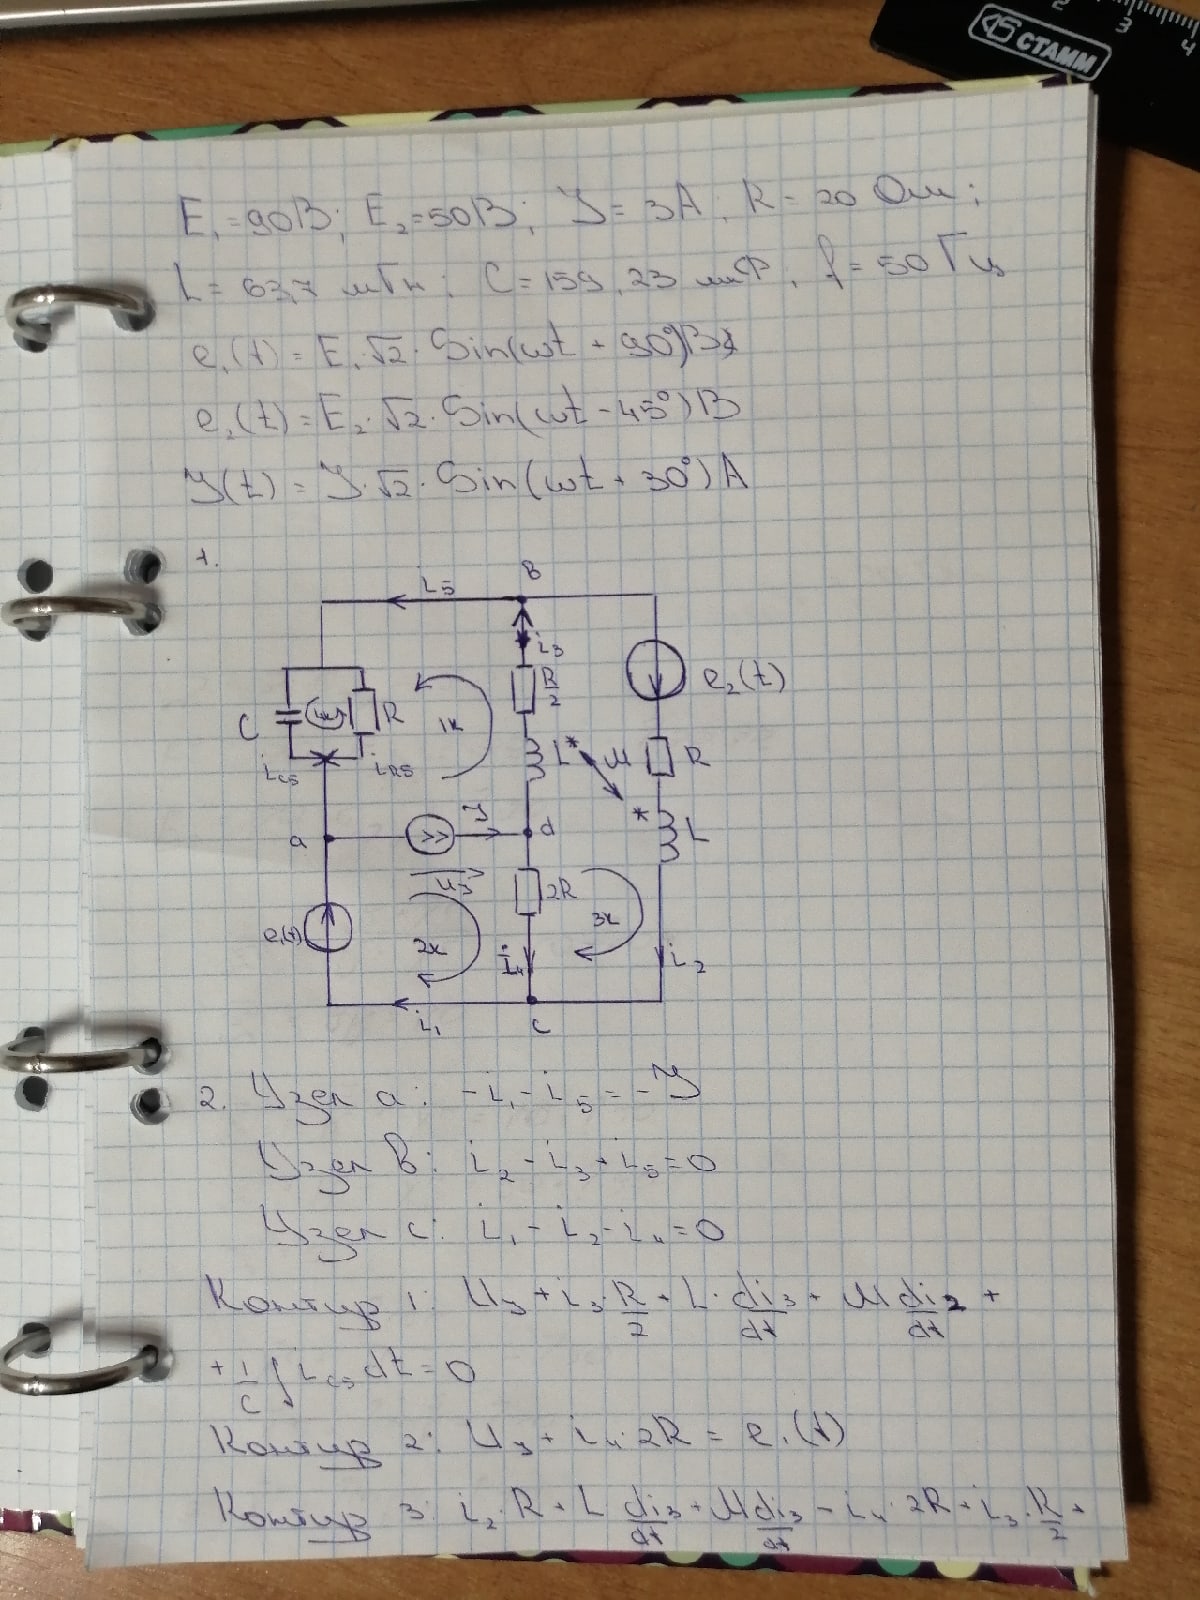 2 3 4
СТАММ
E₁=90В; E₂=50В; J= 3А; R= 20 Ом;
L= 63,7 мГн; C=159,23 мкФ, f=50Гц
e₁(t) = E₁√2·Sin(ωt + 90°)В
e₂(t)=E₂·√2·Sin(ωt-45°)В
J(t) = J·√2·Sin(ωt+30°)А
1.
i₅ B
i₃
R/2 e₂(t)
C 4к R 1к
L * M R
iC5 iR5
J * L
a d
UJ 2R
e₁(t) 2к 3к
i₄ i₂
i₁ c
2. Узел a: -i₁-i₅=-J
Узел B: i₂-i₃+i₅=0
Узел c: i₁-i₂-i₄=0
Контур 1: UJ+i₃R/2+L·di₃/dt+Mdi₂/dt+
+1/C∫iC5dt=0
Контур 2: UJ+i₄·2R=e₁(t)
Контур 3: i₂·R+L di₃/dt+Mdi₃/dt-i₄·2R+i₃·R/2+